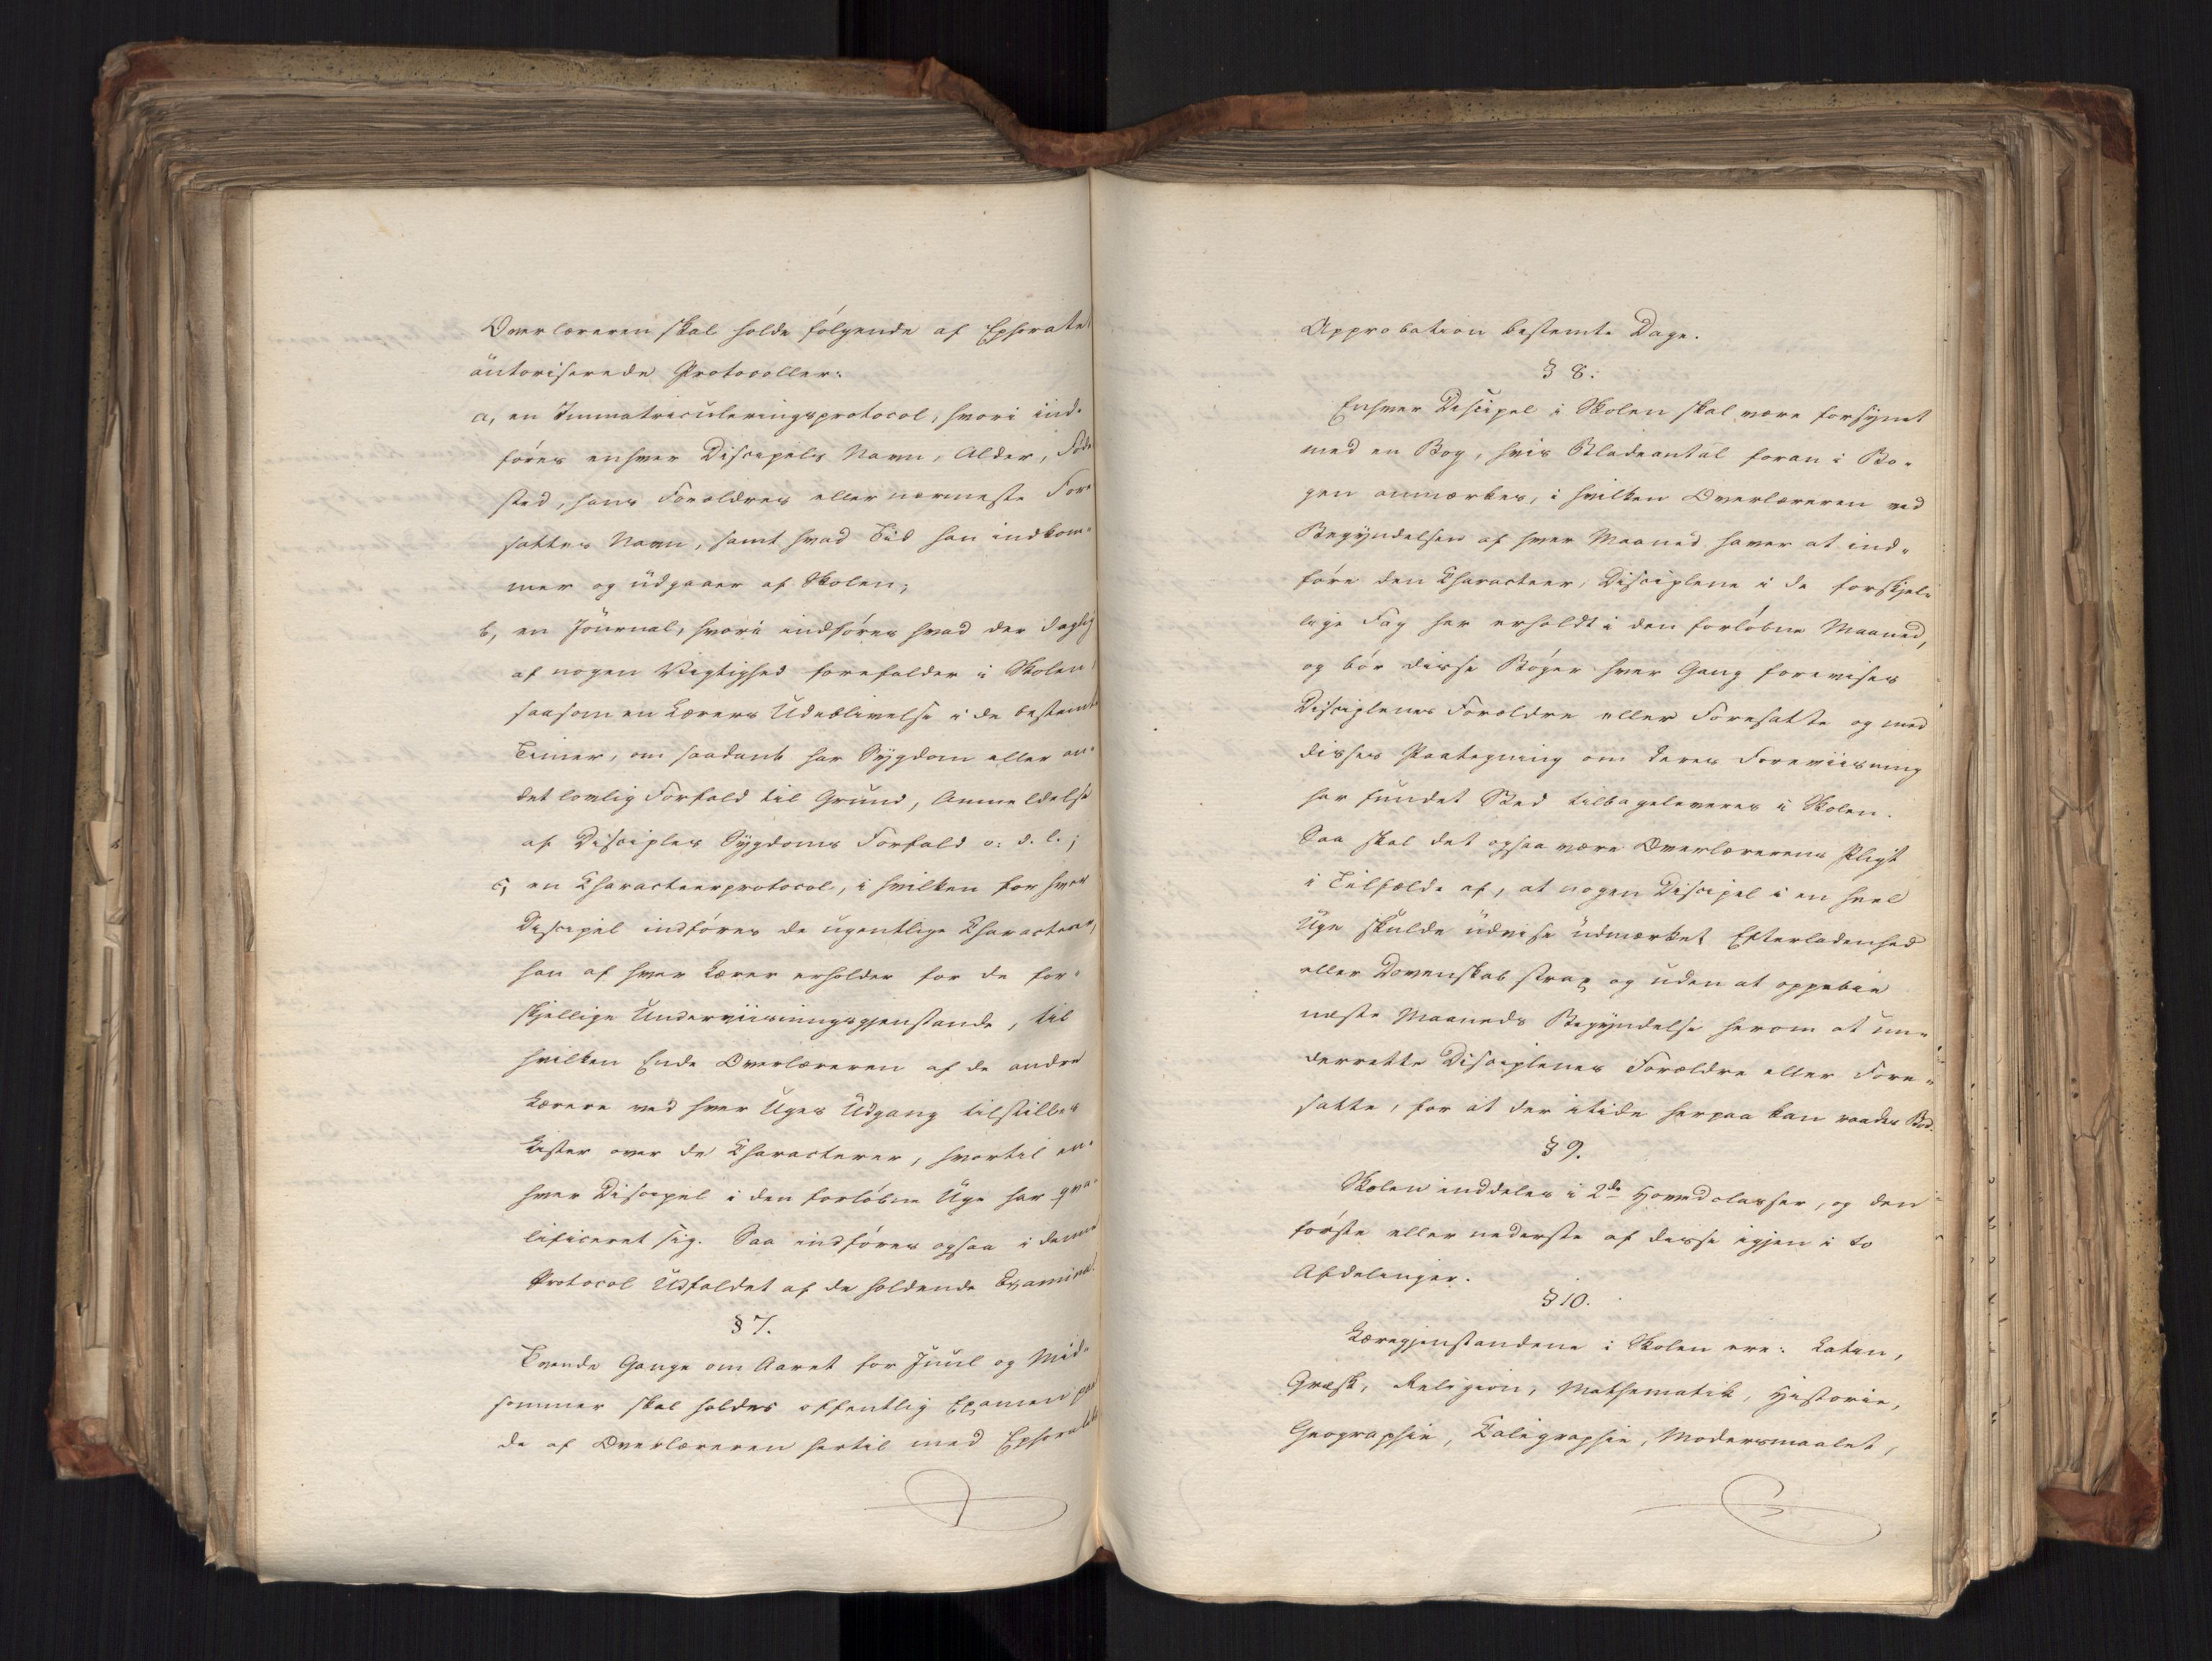 Overlæreren skal holde følgende af Ephoratet
autoriserede Protocoller:
a, en Immatriculeringsprotocol, hvori ind-
føres enhver Discipels Navn, Alder, Føde
sted, hans Forældres eller nærmeste Fore
satte's Navn, samt hvad Tid han indkom-
mer og udgaaer af Skolen;
b, en Journal, hvori indføres hvad der daglig
af nogen Vigtighed forefalder i Skolen
saasom en Lærers Udeblivelse i de bestemte
Timer, om saadant har Sygdom eller an-
det lovlig Forfald til Grund, Anmeldelse
af Disciples Sygdoms Forfald o: d. l.;
c, en Characteerprotocol, i hvilken for hver
Discipel indføres de ugentlige Characteer,
han af hver Lærer erholder for de for-
skjellige Underviisningsgjenstande, til
hvilken Ende Overlæreren af de andre
Lærere ved hver Uges Udgang tilstilles
Lister over de Characterer, hvortil en-
hver Discipel i den forløbne Uge har qva-
lificeret sig. Saa indføres ogsaa i denne
Protocol Udfaldet af de holdende Examina.
§ 7.
Tvende Gange om Aaret for Juul og Mid-
sommer skal holdes offentlig Examen paa
de af Overlæreren hertil med Ephoratets
Approbation bestemte Dage.
§ 8:
Enhver Discipel i Skolen skal være forsynet
med en Bog, hvis Bladeantal foran i Bo-
gen anmærkes, i hvilken Overlæreren ved
Begyndelsen af hver Maaned haver at ind-
føre den Characteer, Disciplene i de forskjel-
lige Fag har erholdt i den forløbne Maaned,
og bør disse Bøger hver Gang forevises
Disciplenes Forældre eller Foresatte og med
disses Paategning om deres Foreviisning
har fundet Sted tilbageleveres i Skolen.
Saa skal det ogsaa være Overlærerens Pligt
i Tilfælde af, at nogen Discipel i en heel
Uge skulde udvise udmærket Efterladenhed
eller Dovenskab strax og uden at oppebie
næste Maaneds Begyndelse herom at un-
derrette Disciplenes Forældre eller Fore-
satte, for at der itide herpaa kan raades Bod.
§ 9.
Skolen inddeles i 2de Hovedclasser, og den
første eller nederste af disse igjen i to
Afdelinger.
§ 10.
Læregjenstandene i Skolen ere: Latin,
Græsk, Religion, Mathematik, Historie,
Geographie, Caligraphie, Modersmaalet,